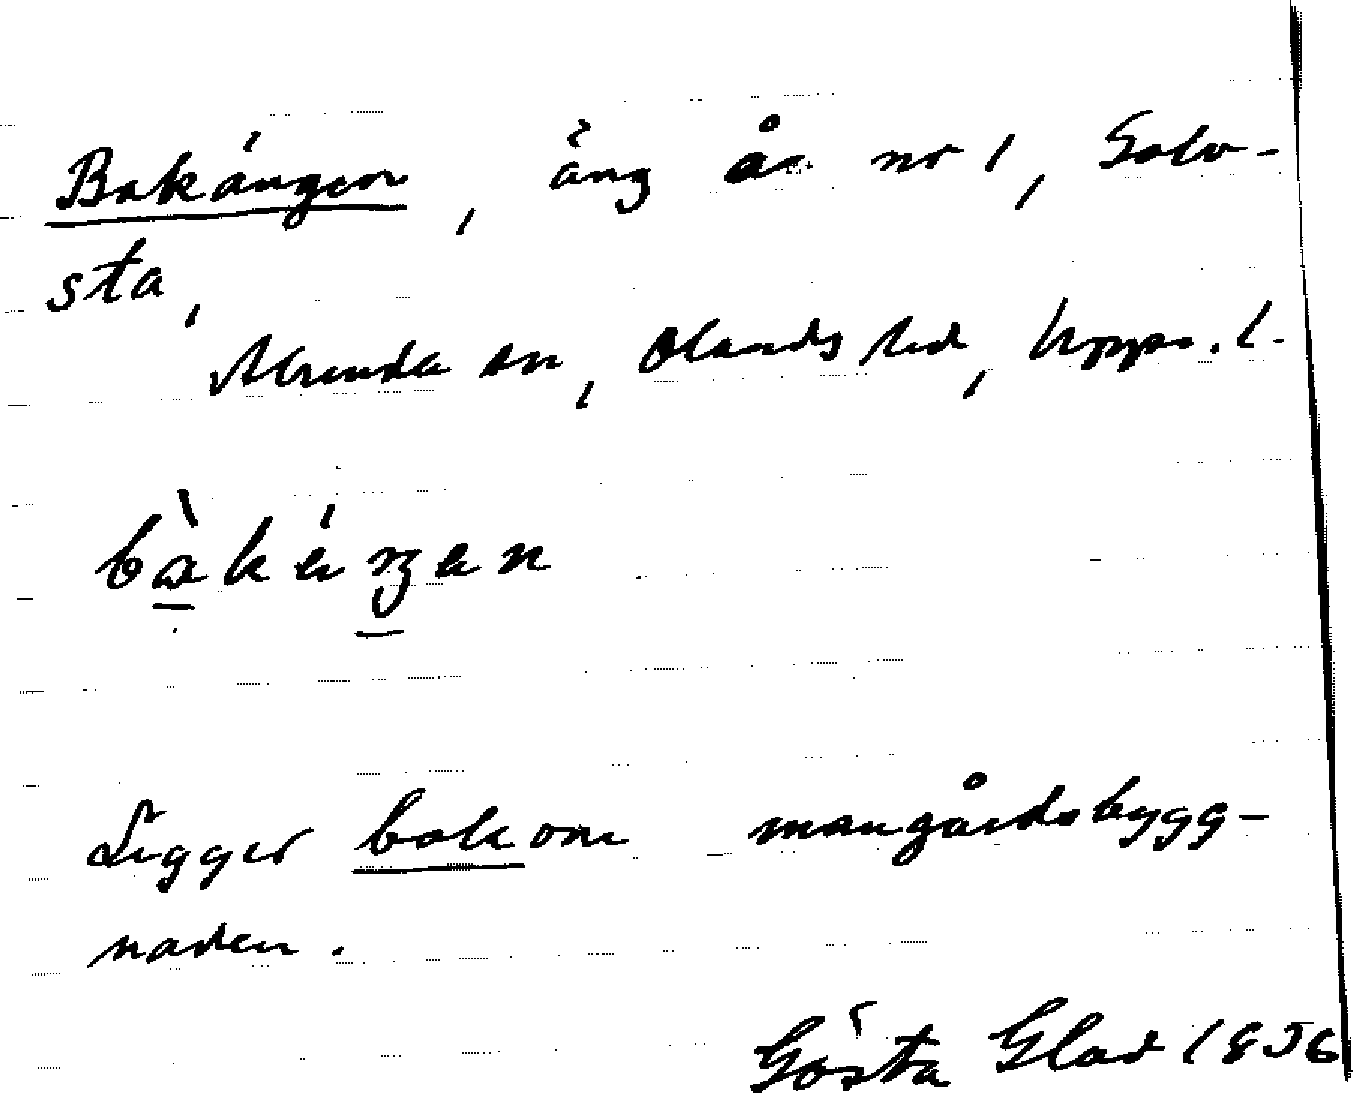 Bakängen, äng å nr 1, Golv-
sta,
Alunda sn, Olands hd, Upps. l.
bàkéŋen
Ligger bakom mangårdsbygg-
naden.
Gösta Glad 1956